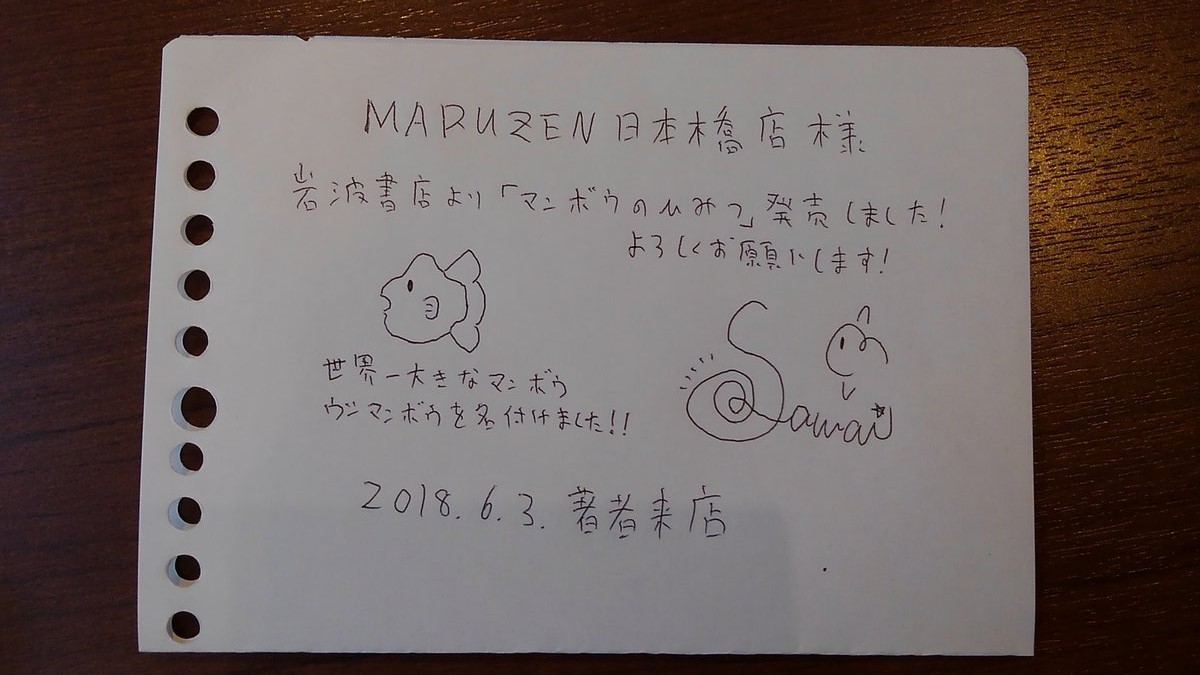 MARUZEN日本橋店様
岩波書店より「マンボウのひみつ」発売しました!
よろしくお願いします!
世界一大きなマンボウ
ウシマンボウを名付けました!!
Sawai
2018.6.3. 著者来店